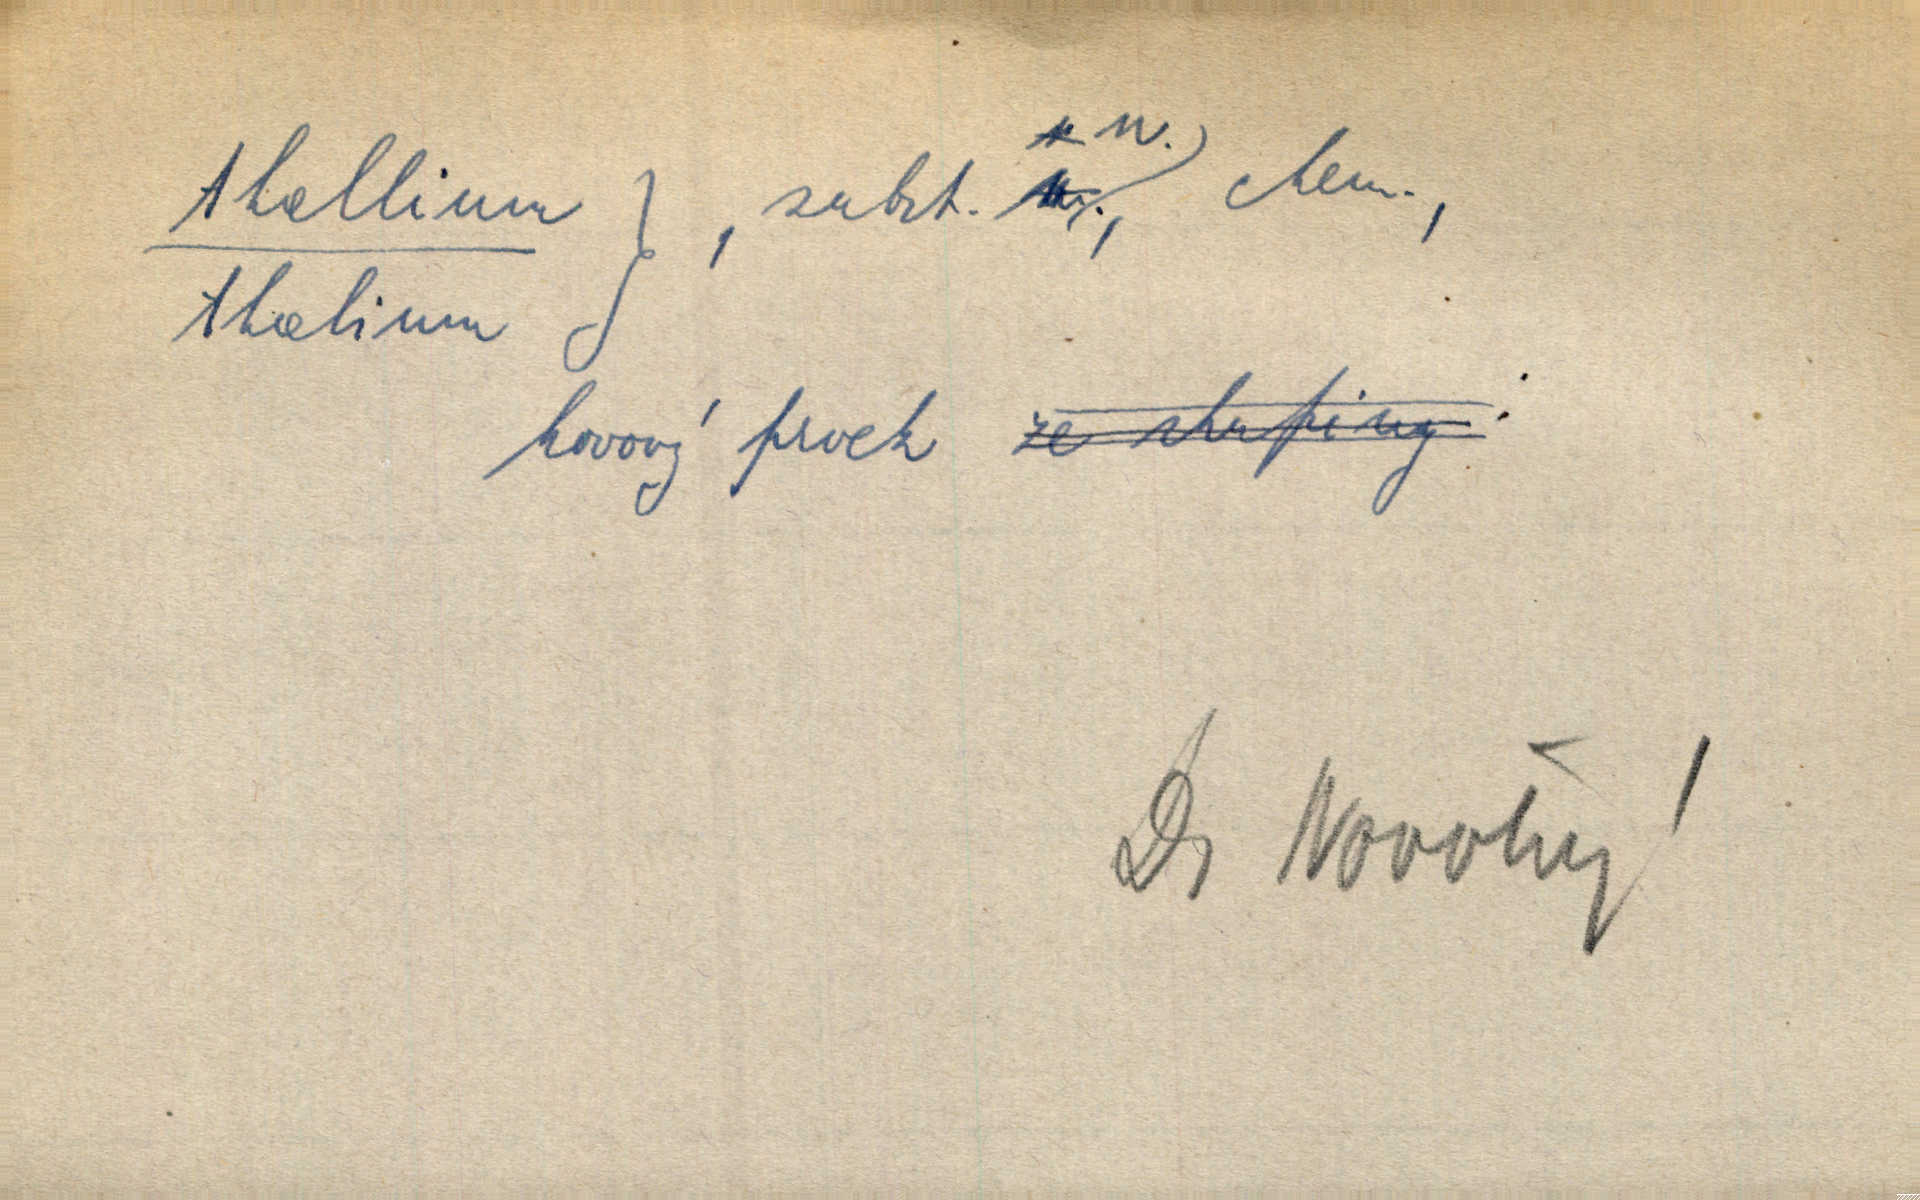 thallium }, subst. n., chem.,
thalium
kovový prvek ze skupiny :
Dr Novotný!